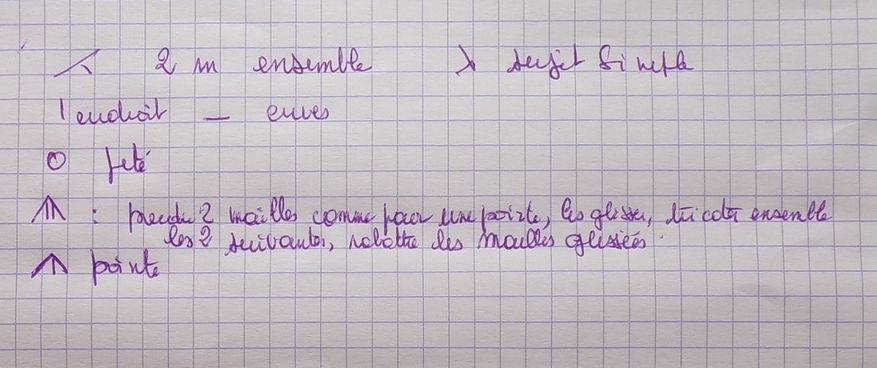 ⋌ 2 m ensemble ⋋ surjet simple
| endroit — envers
O jeté
⩚ : prendre 2 mailles comme pour une pointe, les glisser, tricoter ensemble
les 2 suivantes, rabattre les mailles glissées.
⋀ pointe